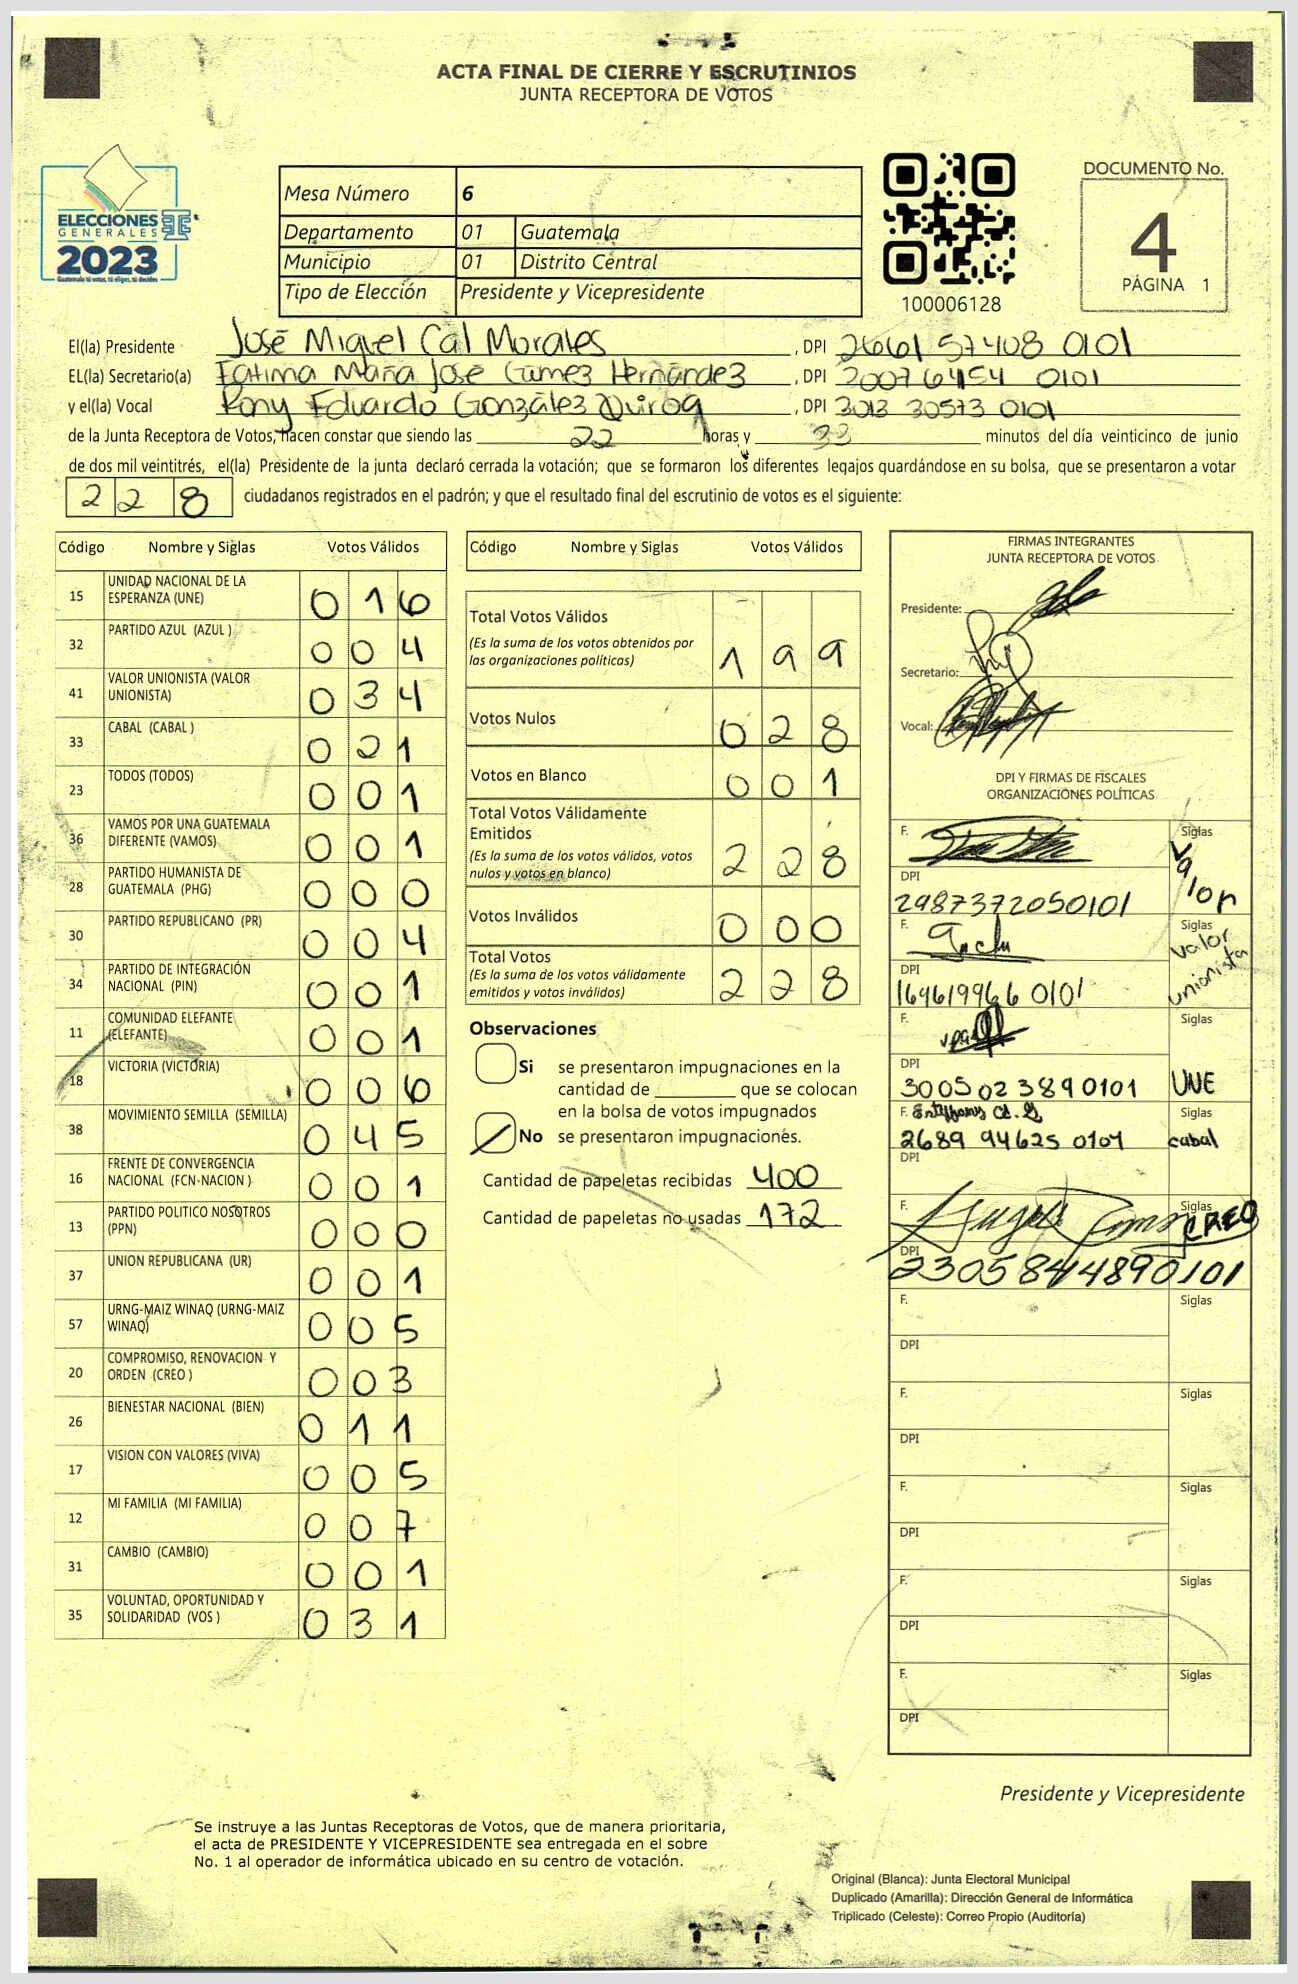 ACTA FINAL DE CIERRE Y ESCRUTINIOS
JUNTA RECEPTORA DE VOTOS
ELECCIONES
GENERALES
2023
Guatemala tú votas, tú eliges, tú decides
Mesa Número 6
Departamento 01 Guatemala
Municipio 01 Distrito Central
Tipo de Elección Presidente y Vicepresidente
100006128
DOCUMENTO No.
4
PÁGINA 1
El(la) Presidente José Miguel Cal Morales, DPI 2661 57408 0101
EL(la) Secretario(a) Fátima María José Gámez Hernández, DPI 2007 6454 0101
y el(la) Vocal Rony Eduardo González Quiroa, DPI 3013 30573 0101
de la Junta Receptora de Votos, hacen constar que siendo las 22 horas y 33 minutos del día veinticinco de junio
de dos mil veintitrés, el(la) Presidente de la junta declaró cerrada la votación; que se formaron los diferentes legajos guardándose en su bolsa, que se presentaron a votar
228 ciudadanos registrados en el padrón; y que el resultado final del escrutinio de votos es el siguiente:
Código Nombre y Siglas Votos Válidos
15 UNIDAD NACIONAL DE LA ESPERANZA (UNE) 016
32 PARTIDO AZUL (AZUL ) 004
41 VALOR UNIONISTA (VALOR UNIONISTA) 034
33 CABAL (CABAL ) 021
23 TODOS (TODOS) 001
36 VAMOS POR UNA GUATEMALA DIFERENTE (VAMOS) 001
28 PARTIDO HUMANISTA DE GUATEMALA (PHG) 000
30 PARTIDO REPUBLICANO (PR) 004
34 PARTIDO DE INTEGRACIÓN NACIONAL (PIN) 001
11 COMUNIDAD ELEFANTE (ELEFANTE) 001
18 VICTORIA (VICTORIA) 006
38 MOVIMIENTO SEMILLA (SEMILLA) 045
16 FRENTE DE CONVERGENCIA NACIONAL (FCN-NACION ) 001
13 PARTIDO POLITICO NOSOTROS (PPN) 000
37 UNION REPUBLICANA (UR) 001
57 URNG-MAIZ WINAQ (URNG-MAIZ WINAQ) 005
20 COMPROMISO, RENOVACION Y ORDEN (CREO ) 003
26 BIENESTAR NACIONAL (BIEN) 011
17 VISION CON VALORES (VIVA) 005
12 MI FAMILIA (MI FAMILIA) 007
31 CAMBIO (CAMBIO) 001
35 VOLUNTAD, OPORTUNIDAD Y SOLIDARIDAD (VOS ) 031
Código Nombre y Siglas Votos Válidos
Total Votos Válidos 199
(Es la suma de los votos obtenidos por
las organizaciones políticas)
Votos Nulos 028
Votos en Blanco 001
Total Votos Válidamente
Emitidos 228
(Es la suma de los votos válidos, votos
nulos y votos en blanco)
Votos Inválidos 000
Total Votos 228
(Es la suma de los votos válidamente
emitidos y votos inválidos)
Observaciones
Si se presentaron impugnaciones en la
cantidad de ________ que se colocan
en la bolsa de votos impugnados
No se presentaron impugnaciones.
Cantidad de papeletas recibidas 400
Cantidad de papeletas no usadas 172
FIRMAS INTEGRANTES
JUNTA RECEPTORA DE VOTOS
Presidente:
Secretario:
Vocal:
DPI Y FIRMAS DE FISCALES
ORGANIZACIONES POLÍTICAS
F. Siglas Valor
DPI 2987372050101
F. Siglas valor unionista
DPI 169619966 0101
F. Siglas UNE
DPI 3005023890101
F. Siglas cabal
DPI 2689 94625 0101
F. Siglas CREO
DPI 2305844890101
F. Siglas
DPI
F. Siglas
DPI
F. Siglas
DPI
F. Siglas
DPI
F. Siglas
DPI
Presidente y Vicepresidente
Se instruye a las Juntas Receptoras de Votos, que de manera prioritaria,
el acta de PRESIDENTE Y VICEPRESIDENTE sea entregada en el sobre
No. 1 al operador de informática ubicado en su centro de votación.
Original (Blanca): Junta Electoral Municipal
Duplicado (Amarilla): Dirección General de Informática
Triplicado (Celeste): Correo Propio (Auditoría)